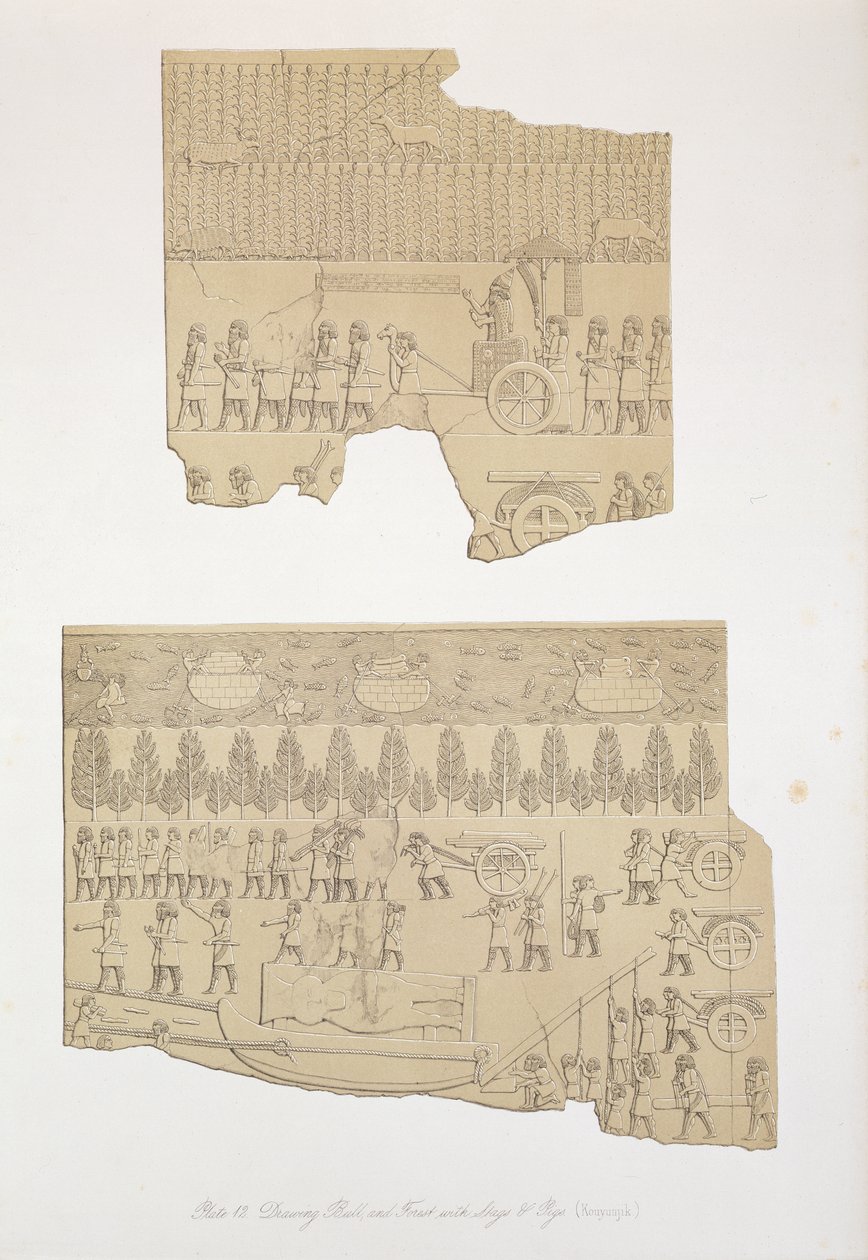 Plate 12. Drawing Bull, and Forest with Stags & Pigs (Kouyunjik.)